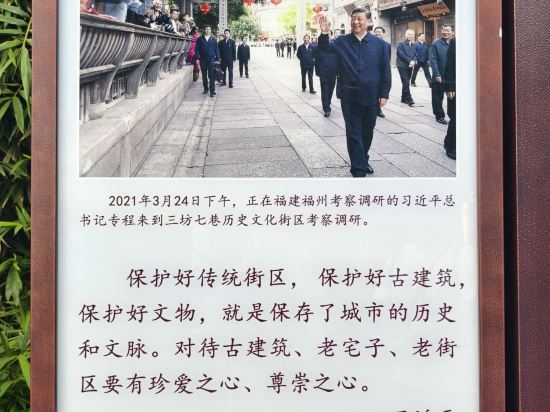 2021年3月24日下午，正在福建福州考察调研的习近平总
书记专程来到三坊七巷历史文化街区考察调研。
保护好传统街区，保护好古建筑，
保护好文物，就是保存了城市的历史
和文脉。对待古建筑、老宅子、老街
区要有珍爱之心、尊崇之心。